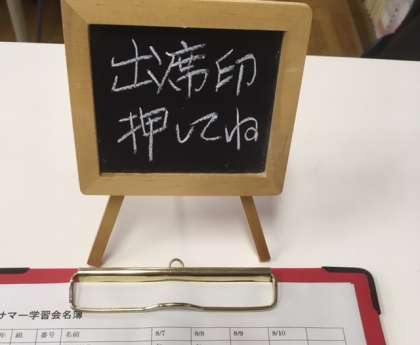 出席印
押してね
サマー学習会名簿
年 組 番号 名前 8/7 8/8 8/9 8/10